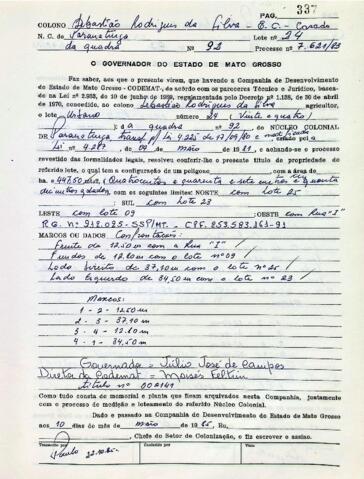 PAG. 337
COLONO Sebastião Rodrigues da Silva - B.C. - Casado
N. C. de Paranatinga Lote nº 24
da quadra Nº 92 Processo nº 7.621/83
O GOVERNADOR DO ESTADO DE MATO GROSSO
Faz saber, aos que o presente virem, que havendo a Companhia de Desenvolvimento
do Estado de Mato Grosso - CODEMAT-, de acôrdo com os pareceres Técnico e Jurídico, basea-
do na Lei nº 2.933, de 10 de junho de 1969, regulamentada pelo Decreto nº 1.138, de 30 de
abril de 1970, concedido, ao colono Sebastião Rodrigues da Silva agricultor,
o lote Urbano número 24 (Vinte e quatro)
da quadra 92, do NÚCLEO COLONIAL
DE Paranatinga Lei 4.225 17/09/80 criado pela
Lei nº 4.287 de 09 de maio 1981, e achando-se o processo
revestido das formalidades legais, resolveu conferir-lhe o presente título de propriedade do
referido lote, o qual tem a configuração de um polígono com a área de
447,50 (Quatrocentos e quarenta e sete
com os seguintes limites: NORTE com lote 25
SUL com lote 23
LESTE com lote 09 OESTE com Rua "I"
R.G. nº 912.025-SSP/MT - CPF. 353.583.161-91
MARCOS OU DADOS Confrontações:
Frente de 12,50 m com a Rua "I"
Fundos de 12,60 m com o lote nº 09
Lado direito de 37,10 m com o lote nº 25
Lado esquerdo de 34,50 m com o lote nº 23
Marcos:
1 - 2 - 12,50 m
2 - 3 - 37,10 m
3 - 4 - 12,60 m
4 - 1 - 34,50 m
Governador = Júlio José de Campos
Diretor da Codemat = Moisés Feltrin
título nº 002101
Como tudo consta do memorial e planta que ficam arquivados nesta Companhia, juntamente
com o processo de medição e loteamento do referido Núcleo Colonial.
Dado e passado na Companhia de Desenvolvimento do Estado de Mato Grosso
aos 10 dias do mês de maio de 1985, Eu,
Chefe do Setor de Colonização, o fiz escrever e assino.
Transcrito por Conferido por Visto
22.10.85.